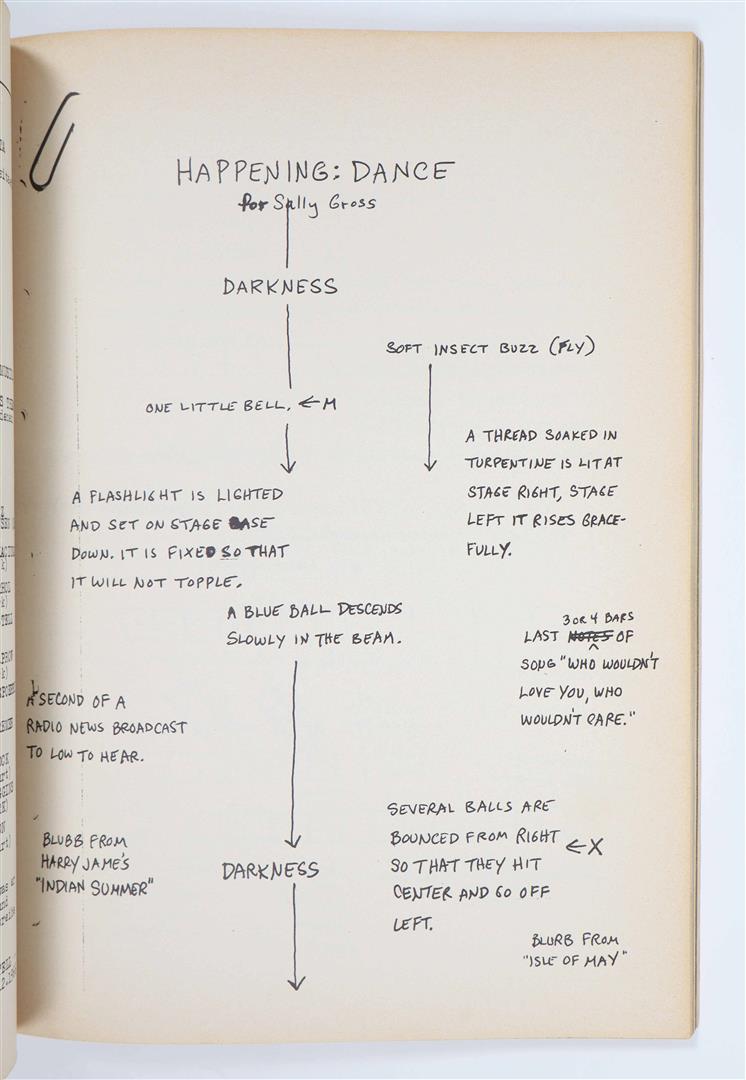 HAPPENING: DANCE
for Sally Gross
DARKNESS
SOFT INSECT BUZZ (FLY)
ONE LITTLE BELL. ← M
A THREAD SOAKED IN
TURPENTINE IS LIT AT
STAGE RIGHT, STAGE
LEFT IT RISES GRACE-
FULLY.
A FLASHLIGHT IS LIGHTED
AND SET ON STAGE BASE
DOWN. IT IS FIXED SO THAT
IT WILL NOT TOPPLE.
A BLUE BALL DESCENDS
SLOWLY IN THE BEAM.
3 OR 4 BARS
LAST NOTES OF
SONG "WHO WOULDN'T
LOVE YOU, WHO
WOULDN'T CARE."
A SECOND OF A
RADIO NEWS BROADCAST
TO LOW TO HEAR.
SEVERAL BALLS ARE
BOUNCED FROM RIGHT
← X
SO THAT THEY HIT
CENTER AND GO OFF
LEFT.
BLUBB FROM
HARRY JAME'S
"INDIAN SUMMER"
DARKNESS
BLURB FROM
"ISLE OF MAY"